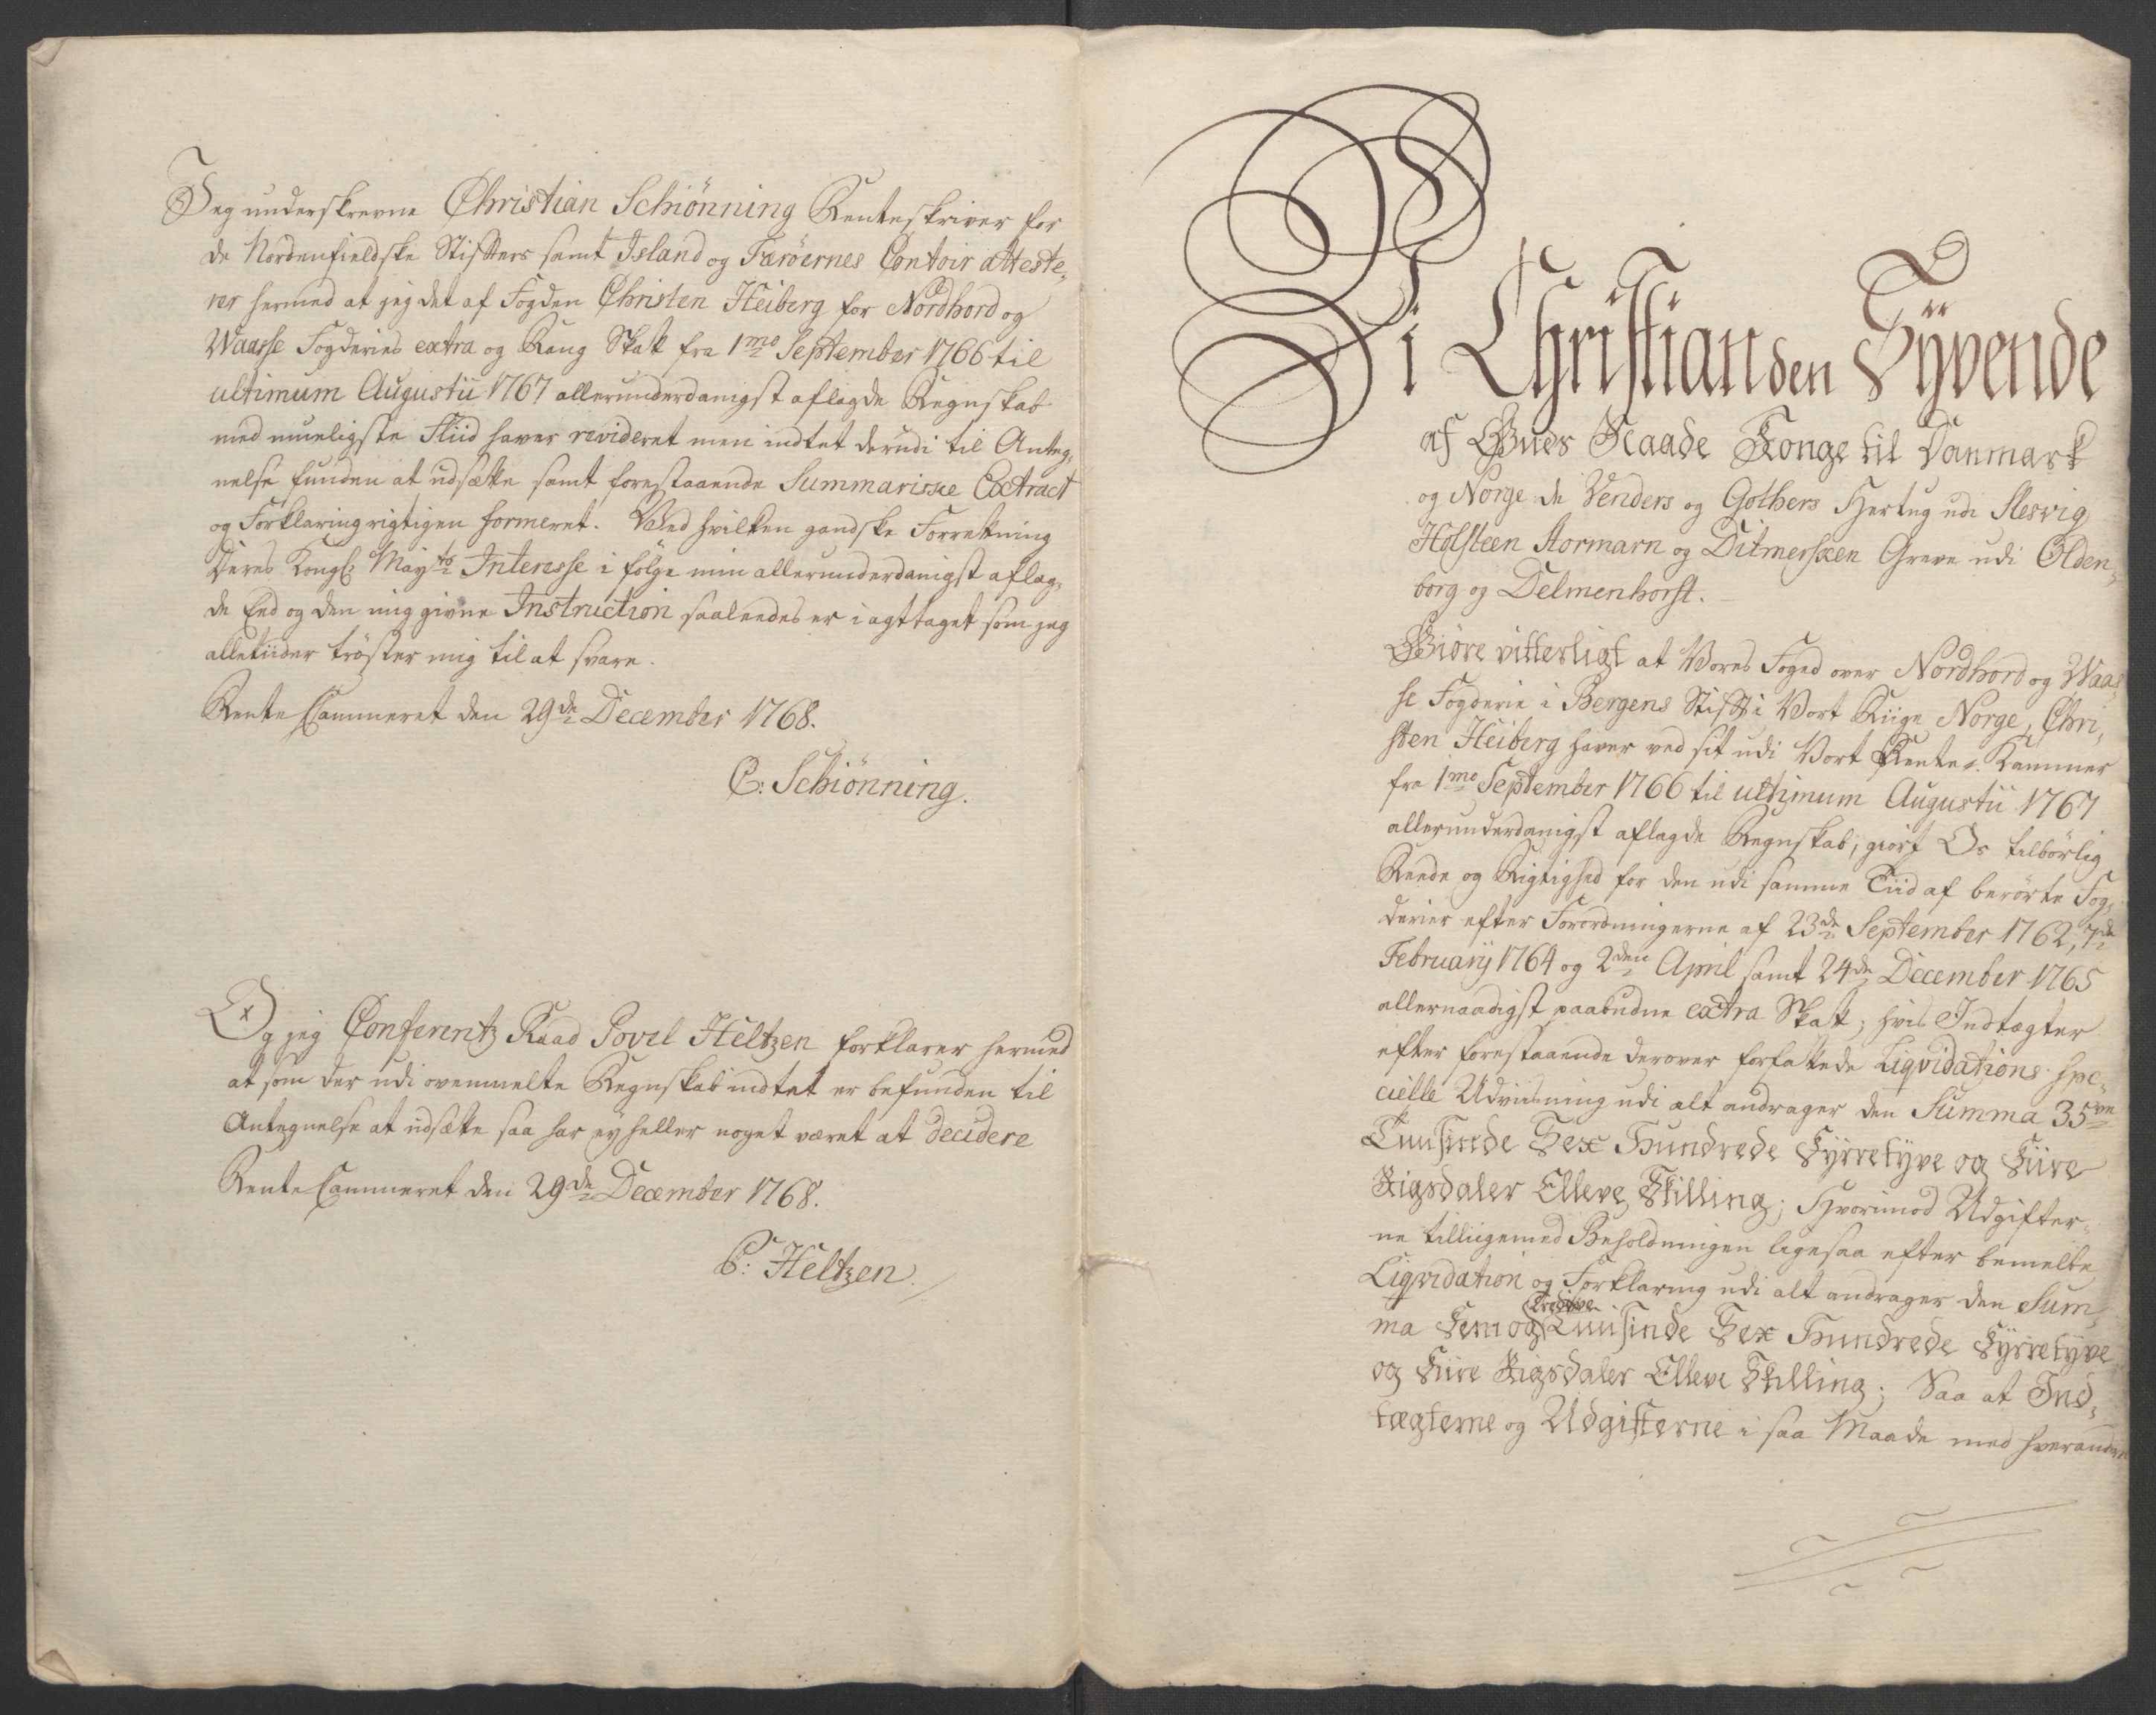 Jeg underskrevne Christian Schiönning Renteskriver for
de Nordenfieldske Stifters samt Island og Færöernes Contoir atteste,
rer hermed at jeg det af Fogden Christen Heiberg for Nordhord og
Waasse Fogderies extra og Rang Skat fra 1mo September 1766 til
ultimum Augustii 1767 allerunderdanigst aflagde Regnskab
med mueligste Fliid haver revideret men indtet derudi til Anteg,
nelse funden at udsætte samt forestaaende Summariske Extract
og Forklaring rigtigen formeret. Ved hvilken gandske Forretning
Deres Kongl: Mayts Interesse i fölge min allerunderdanigst aflag,
de Eed og den mig givne Instruction saaleedes er i agttaget som jeg
alletiider tröster mig til at svare.
Rente Cammeret den 29de December 1768.
C: Schiönning.
Og jeg Conferentz Raad Povel Heltzen forklarer hermed
at som der udi ovenmelte Regnskab indtet er befunden til
Antegnelse at udsætte saa har ey heller noget været at decidere
Rente Cammeret den 29de December 1768.
P: Heltzen.
Vi Christian den Syvende
af Guds Naade Konge til Danmark
og Norge de Venders og Gothers Hertug udi Slesvig
Holsteen Stormarn og Ditmersken Greve udi Olden,
borg og Delmenhorst.
Giöre vitterligt at Vores Foged over Nordhord og Waas,
se Fogderie i Bergens Stift i Vort Riige Norge, Chri,
sten Heiberg haver ved sit udi Vort Rente-Kammer
fra 1mo September 1766 til ultimum Augustii 1767
allerunderdanigst aflagde Regnskab, giort Os tilbörlig
Reede og Rigtighed for den udi samme Tiid af berörte Fog,
derier efter Forordningerne af 23de September 1762, 7de
Februarij 1764 og 2den April samt 24de December 1765
allernaadigst paabudne extra Skat; hvis Indtægter
efter forestaaende derover forfattede Liqvidations spe,
cielle Udviisning udi alt andrager den Summa 35ve
Tuusinde Sex Hundrede Fyrretyve og Fiire
Rigsdaler Elleve Skilling; Hvorimod Udgifter,
ne tilliigemed Beholdningen ligesaa efter bemelte
Liqvidation og Forklaring udi alt andrager den Sum,
ma Fem og Tredive Tuusinde Sex Hundrede Fyrretyve
og Fiire Rigsdaler Elleve Skilling; Saa at Ind,
tægterne og Udgifterne i saa Maade med hverandre